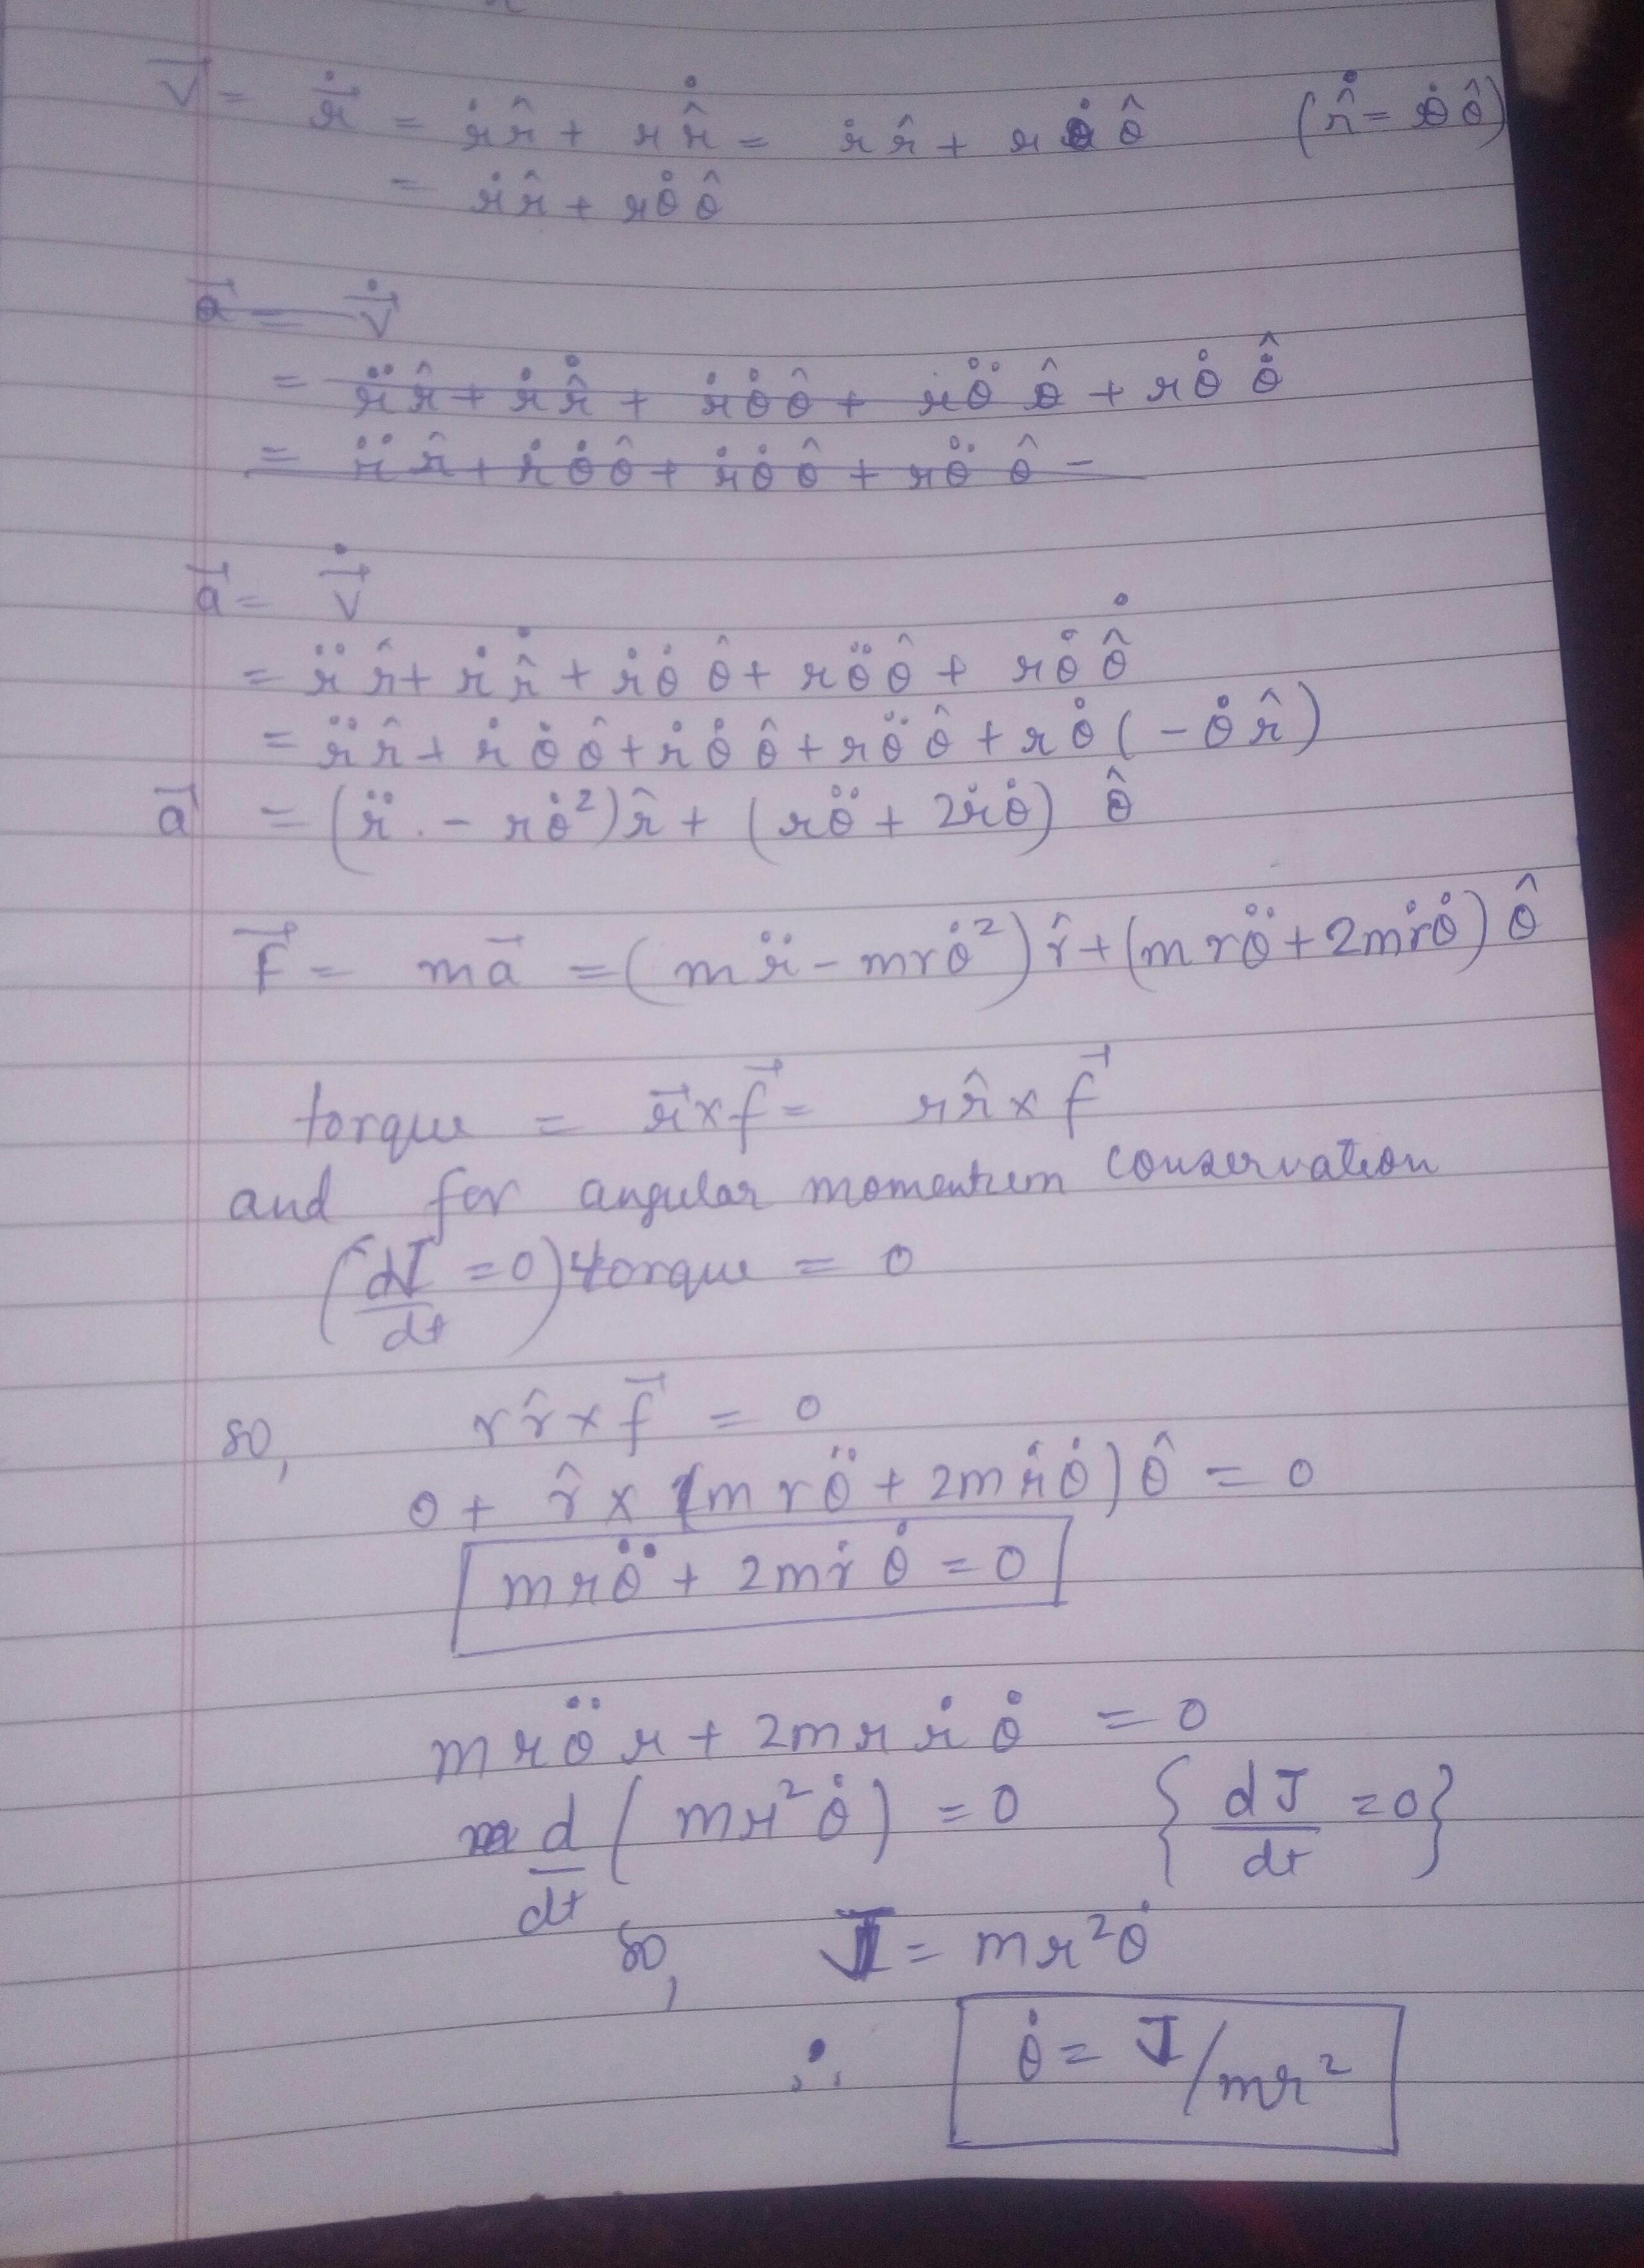 v⃗ = ṙ⃗ = ṙ r̂ + r r̂̇ = ṙ r̂ + r θ̇ θ̂ (r̂̇ = θ̇ θ̂)
= ṙ r̂ + r θ̇ θ̂
a⃗ = v⃗̇
= r̈ r̂ + ṙ r̂̇ + ṙ θ̇ θ̂ + r θ̈ θ̂ + r θ̇ θ̂̇
= r̈ r̂ + ṙ θ̇ θ̂ + ṙ θ̇ θ̂ + r θ̈ θ̂ −
a⃗ = v⃗̇
= r̈ r̂ + ṙ r̂̇ + ṙ θ̇ θ̂ + r θ̈ θ̂ + r θ̇ θ̂̇
= r̈ r̂ + ṙ θ̇ θ̂ + ṙ θ̇ θ̂ + r θ̈ θ̂ + r θ̇ (− θ̇ r̂)
a⃗ = (r̈ − r θ̇²) r̂ + (r θ̈ + 2 ṙ θ̇) θ̂
F⃗ = m a⃗ = (m r̈ − m r θ̇²) r̂ + (m r θ̈ + 2 m ṙ θ̇) θ̂
torque = r⃗ × f⃗ = r r̂ × f⃗
and for angular momentum conservation
(dJ/dt = 0) torque = 0
so, r r̂ × f⃗ = 0
0 + r̂ × (m r θ̈ + 2 m ṙ θ̇) θ̂ = 0
m r θ̈ + 2 m ṙ θ̇ = 0
m r θ̈ r + 2 m r ṙ θ̇ = 0
d/dt (m r² θ̇) = 0 {dJ/dt = 0}
so, J = m r² θ̇
∴ θ̇ = J/mr²